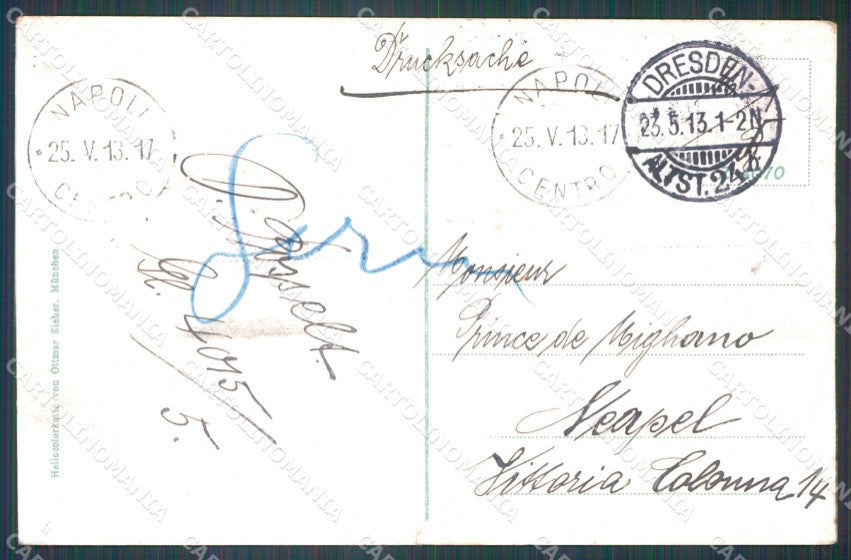 Drucksache
NAPOLI
25. V. 13. 17
CENTRO
NAPOLI
25. V. 13. 17
CENTRO
DRESDEN-A
23.5.13. 1-2N
ALTST. 24
Monsieur
Prince de Mighano
Neapel
Vittoria Colonna 14
4015/
5.
Heliocolorkarte von Ottmar Zieher, München
CARTOLINOMANIA